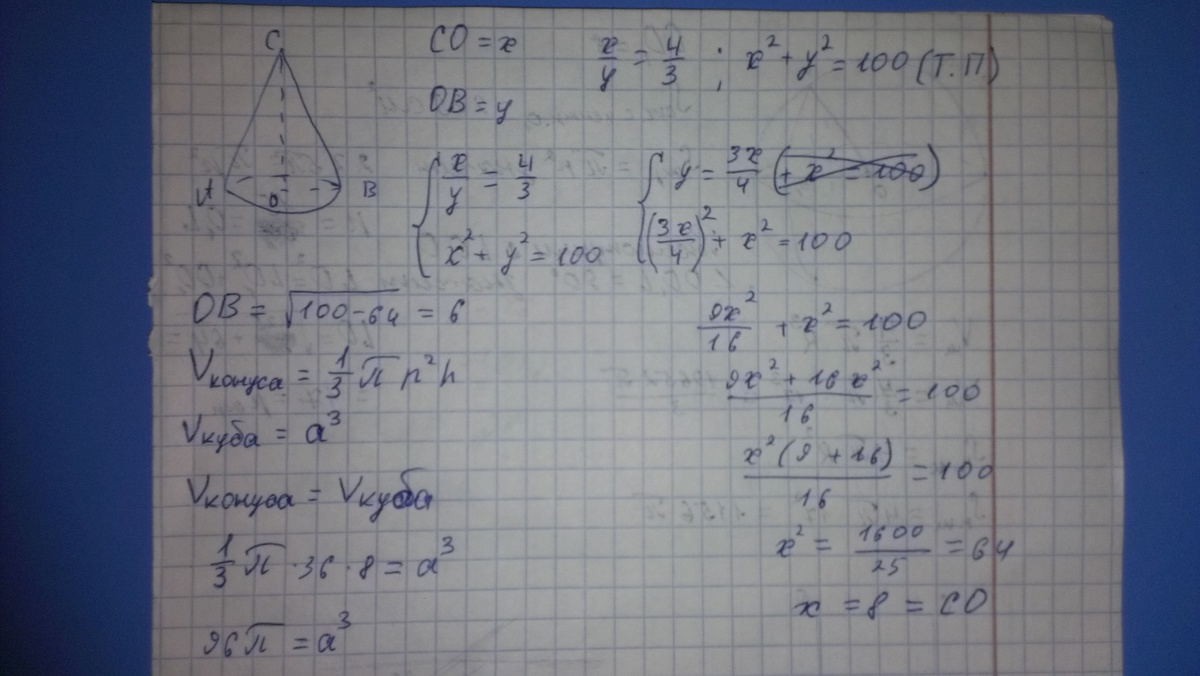 C
A
O
B
CO = x
x/y = 4/3 ; x² + y² = 100 (Т.П)
OB = y
{ x/y = 4/3
x² + y² = 100
{ y = 3x/4 (+ x² = 100)
(3x/4)² + x² = 100
OB = √100-64 = 6
Vконуса = 1/3 π r²h
Vкуба = a³
Vконуса = Vкуба
1/3 π · 36 · 8 = a³
96π = a³
9x²/16 + x² = 100
9x² + 16x²/16 = 100
x²(9 + 16)/16 = 100
x² = 1600/25 = 64
x = 8 = CO